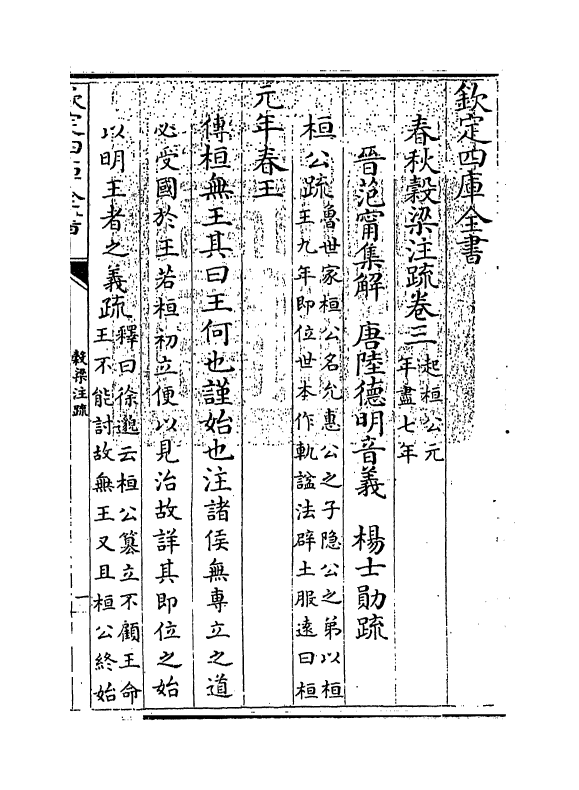 欽定四庫全書
春秋穀梁注疏卷三起桓公元年盡七年
晉范甯集解　唐陸德明音義　楊士勛疏
桓公疏魯世家桓公名允惠公之子隱公之弟以桓王九年即位世本作軌諡法辟土服遠曰桓
元年春王
傳桓無王其曰王何也謹始也注諸侯無專立之道
必受國於王若桓初立便以見治故詳其即位之始
以明王者之義疏釋曰徐邈云桓公簒立不顧王命王不能討故無王又且桓公終始
欽定四庫全書
穀梁注疏
一